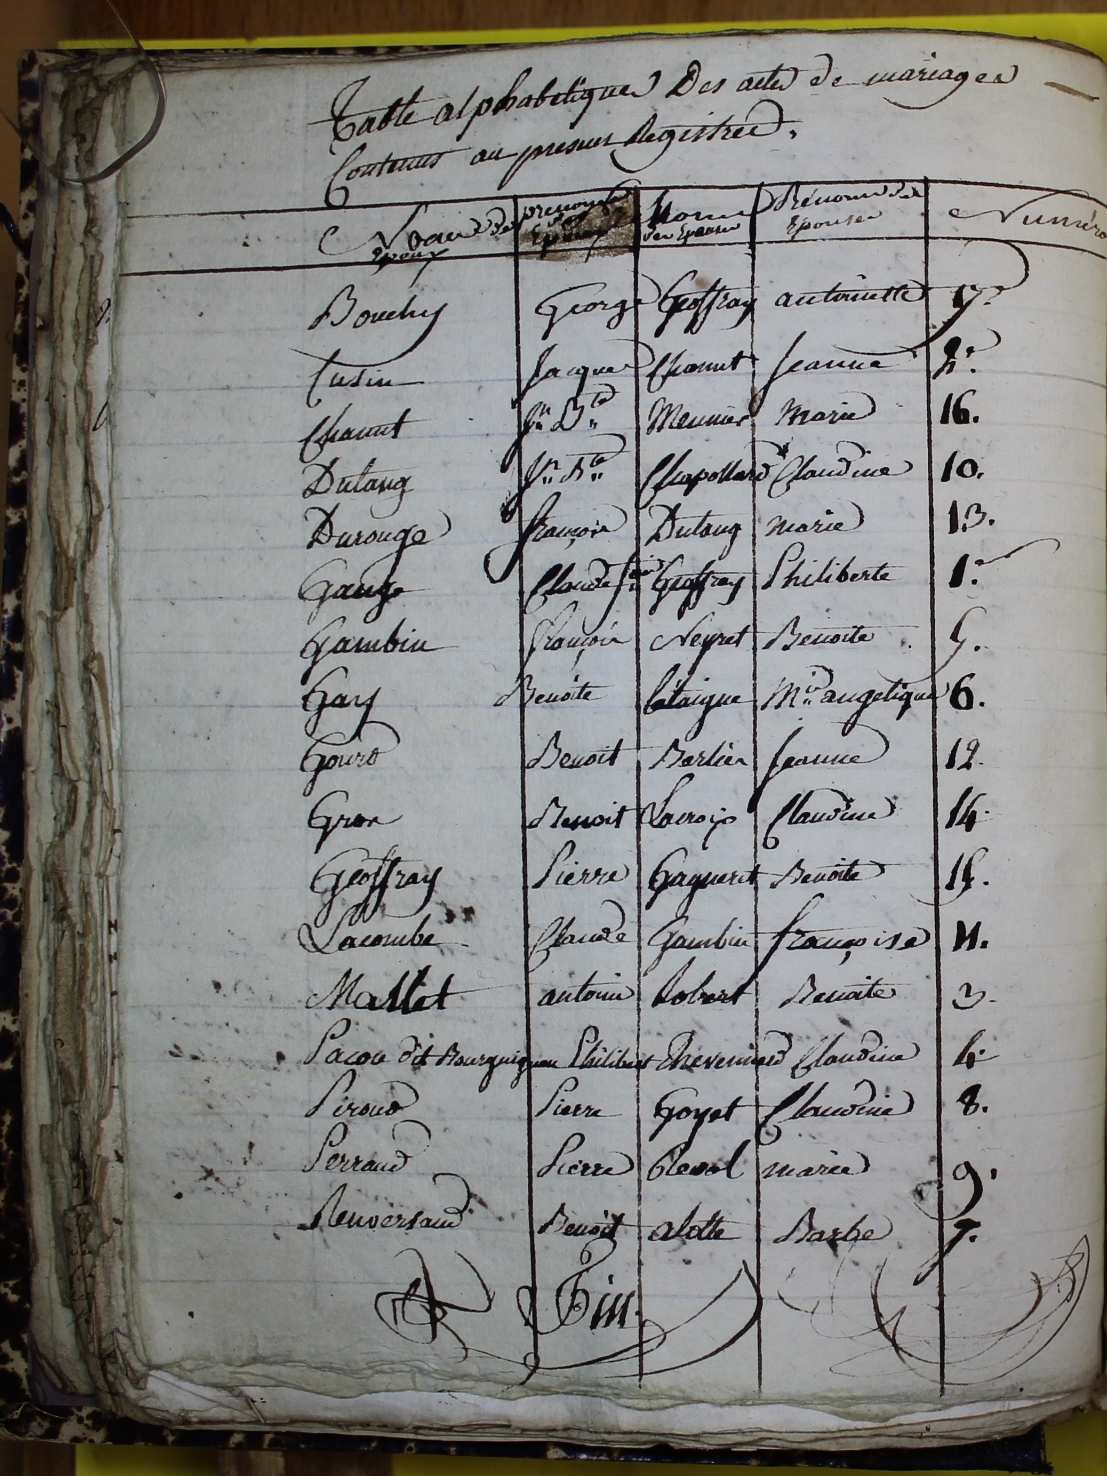 Table alphabetique Des actes de mariages
Contenus au present Registre.
Noms des Epoux prenoms des Epoux Noms des Epouses Prénoms des Epouses Numéro
Bouchy George Geoffray antoinette 17.
Cusin Jacque Chanut Jeanne 2.
Chanut Jn. Bte. Meunier Marie 16.
Dutang Jn. Bte. Chapollard Claudine 10.
Durouge françois Dutang marie 13.
Gauge Claude Geoffray Philiberte 1.
Gambin françois Neyret Benoite 5.
Gay Benoite Cataigne Mie. angelique 6.
Gourd Benoit Berlier Jeanne 12.
Gros Benoit Lacroix Claudine 14.
Geoffray Pierre Gagneret Benoite 15.
Lacombe Claude Gambin françoise 11.
Mallet antoine Robert Benoite 3.
Pacou dit Bourguignon Philibert Thevenard Claudine 4.
Piroud Pierre Goyet Claudine 8.
Perraud Pierre Revol marie 9.
Renversaud Benoit alotte Barbe 7.
Fin.